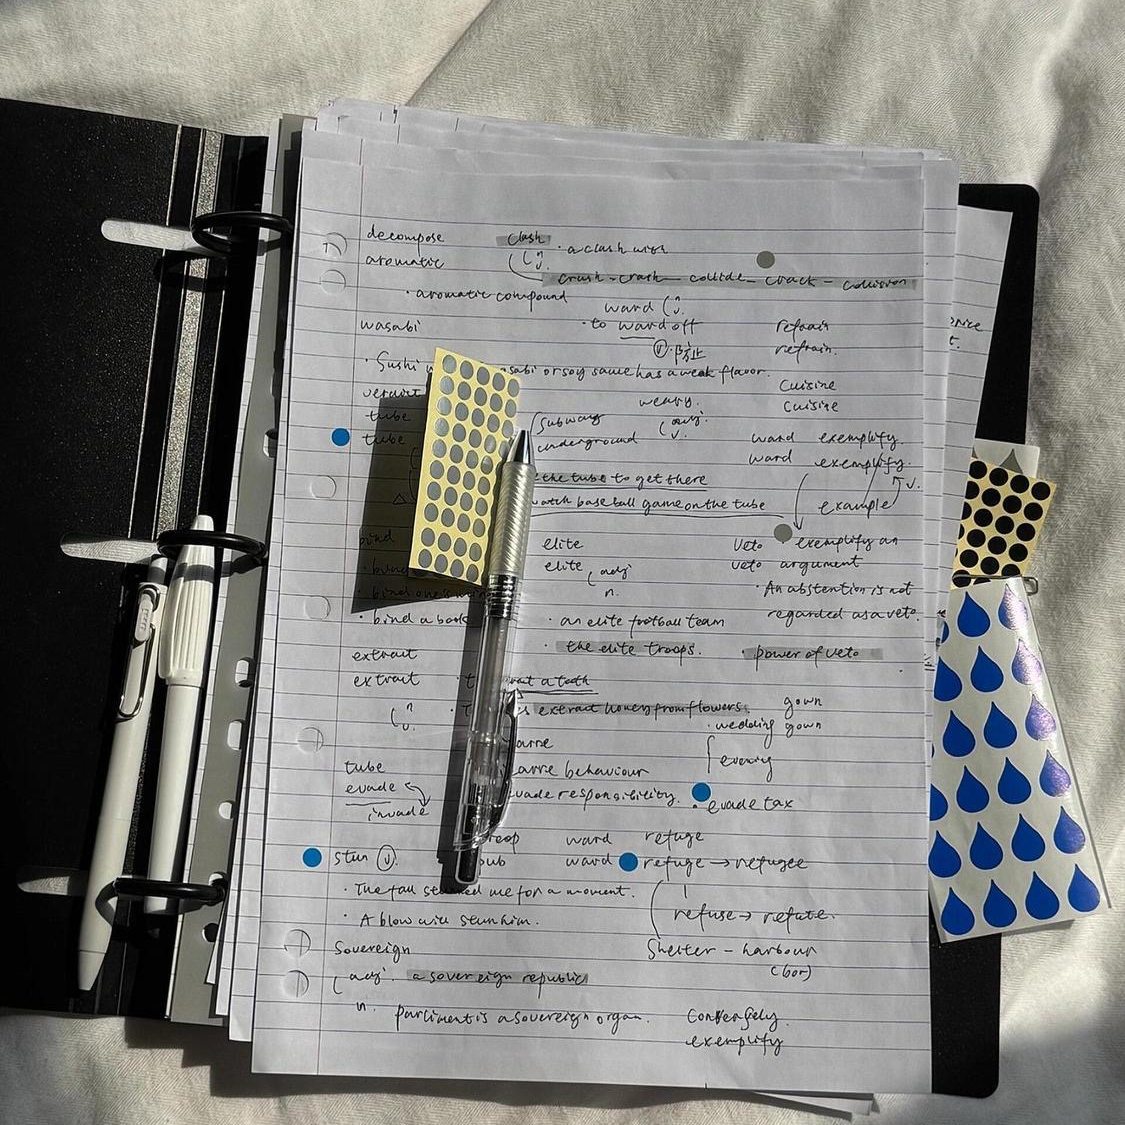 decompose clash · a clash with
aromatic n. v.
crush - crash - collide - crack - collision
· aromatic compound ward n. v.
wasabi · to ward off refrain
v. 防止 refrain.
· Sushi wasabi or soy sause has a weak flavor.
verdict weary. cuisine
tube adj. v. cuisine
tube subway
underground ward exemplify.
ward exemplify. v.
the tube to get there example
watch baseball game on the tube
bind elite veto exemplify an
elite adj n. veto argument
· An abstention is not
· bind a book · an elite football team regarded as a veto.
extract · the elite troops. · power of veto
extract extract a tooth
n. v. extract honey from flowers. gown
· wedding gown
evening
tube behaviour
evade evade responsibility. · evade tax
invade
ward refuge
stun v. ward refuge → refugee
· The fall stunned me for a moment.
· A blow will stun him. refuse → refute.
Sovereign Shelter - harbour
adj. a sovereign republic (bor)
n. parliment is a sovereign organ. Conversely.
exemplify